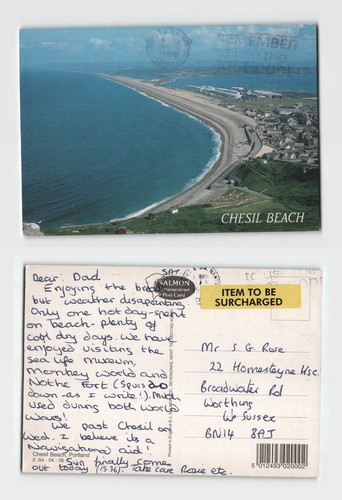 REMEMBER
CHESIL BEACH
SAT
Dear Dad
Enjoying the break
but weather disapointing
Only one hot day-spent
on beach - plenty of
cool dry days. We have
enjoyed visiting the
sea life museum,
Monkey world and
Nothe Fort (5pm so
down as I write!). Much
used during both world
wars.
We past Chesil on
Wed. I believe its a
Navigational aid!
Sun finally come
out today (15th). Take care
SALMON
Post Card
ITEM TO BE
SURCHARGED
Mr S. G. Rose
22 Homesteyne Hse.
Broadwater Rd
Worthing
W. Sussex
BN14 8AJ
Chesil Beach, Portland
2-54-04-06
5 012493 020002